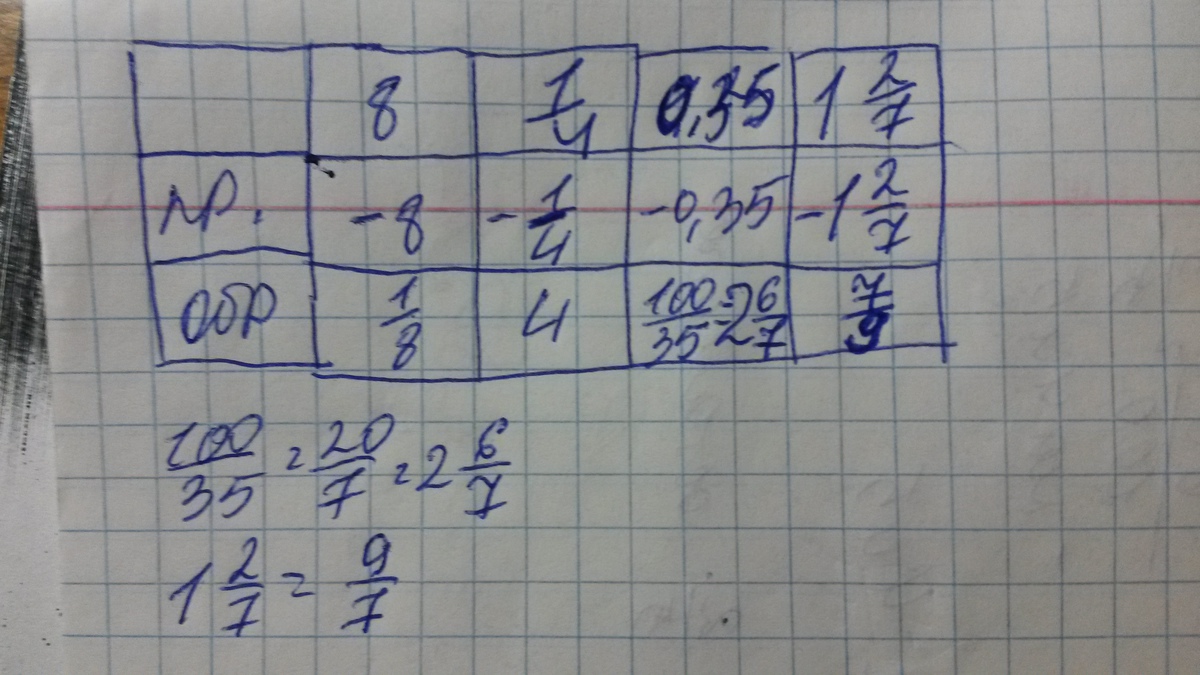 8 1/4 0,35 1 2/7
пр. -8 -1/4 -0,35 -1 2/7
обр 1/8 4 100/35=2 6/7 7/9
100/35 = 20/7 = 2 6/7
1 2/7 = 9/7